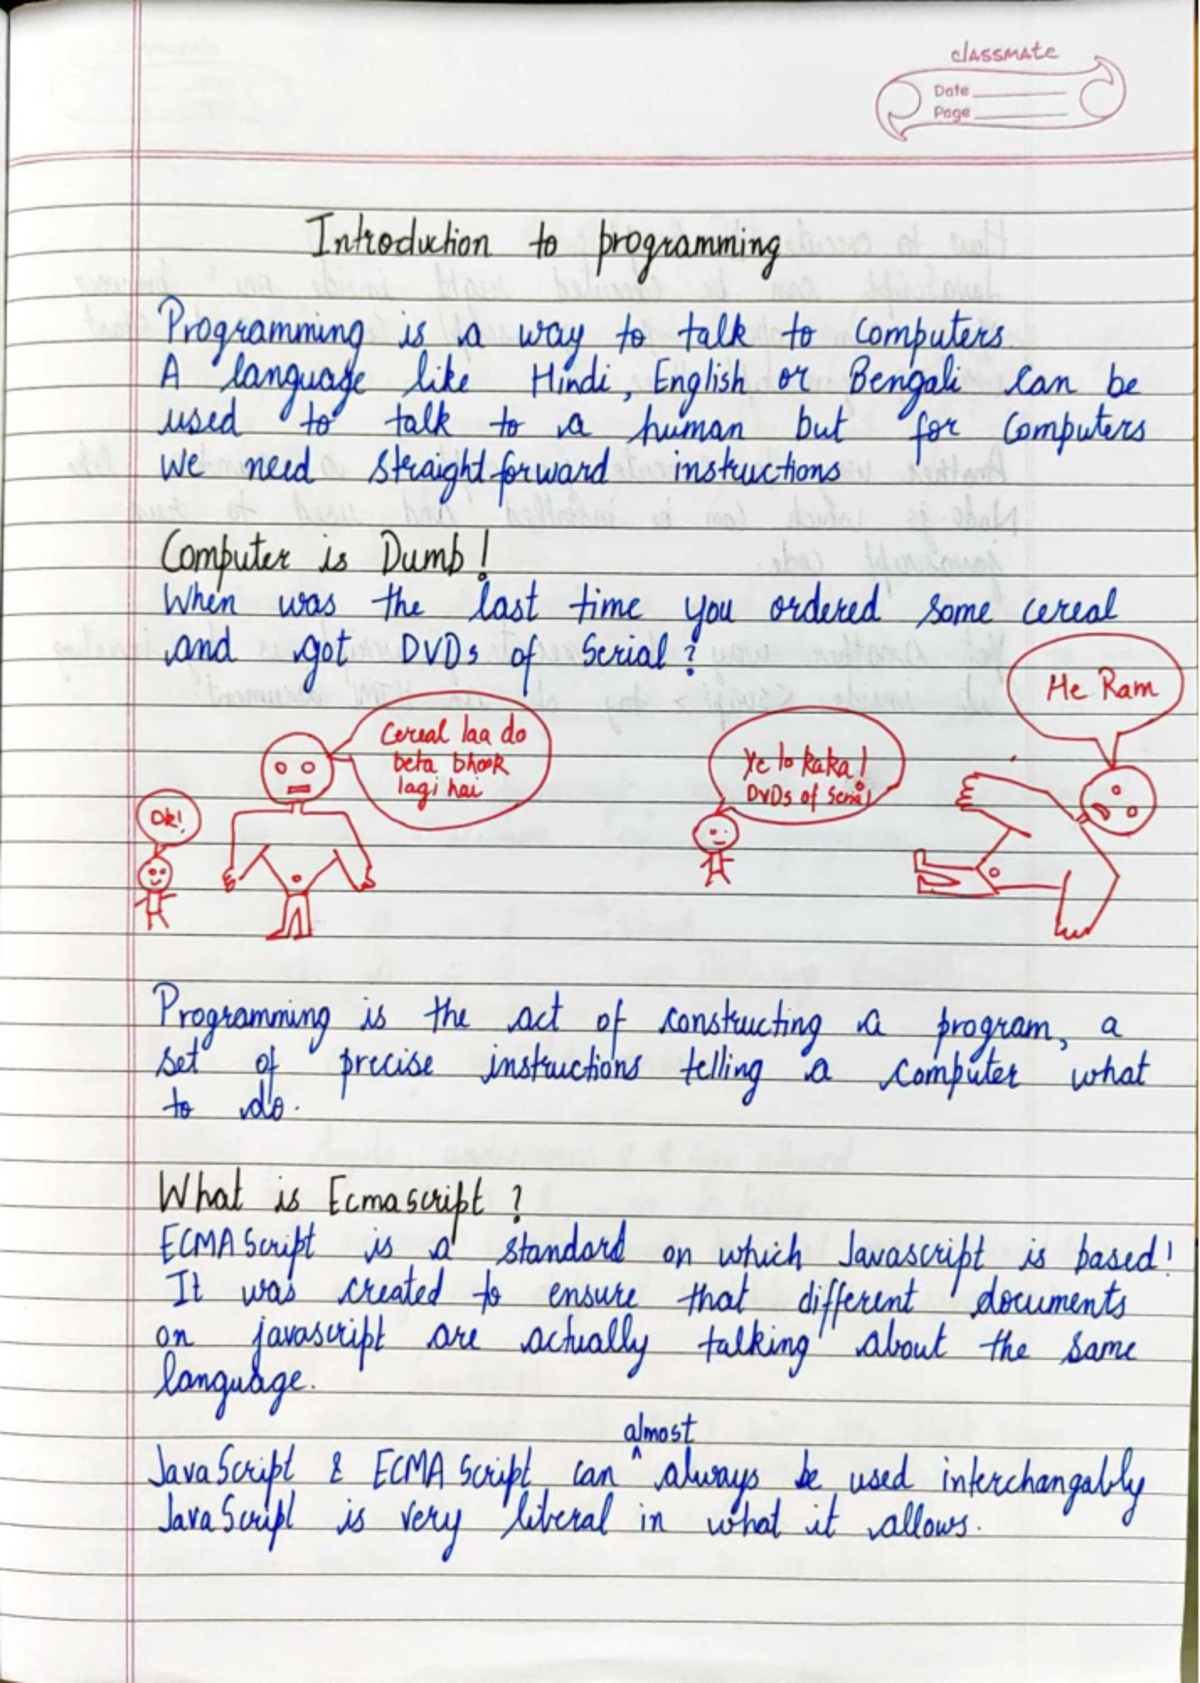 classmate
Date
Page
Introduction to programming
Programming is a way to talk to computers.
A language like Hindi, English or Bengali can be
used to talk to a human but for computers
we need straightforward instructions
Computer is Dumb!
When was the last time you ordered some cereal
and got DVDs of Serial?
He Ram
Cereal laa do
beta bhook
lagi hai
Ok!
Ye lo kaka!
DVDs of Serial
Programming is the act of constructing a program, a
set of precise instructions telling a computer what
to do.
What is Ecmascript?
ECMAScript is a standard on which Javascript is based!
It was created to ensure that different documents
on javascript are actually talking about the same
language.
almost
JavaScript & ECMA Script can ^ always be used interchangably
JavaScript is very liberal in what it allows.